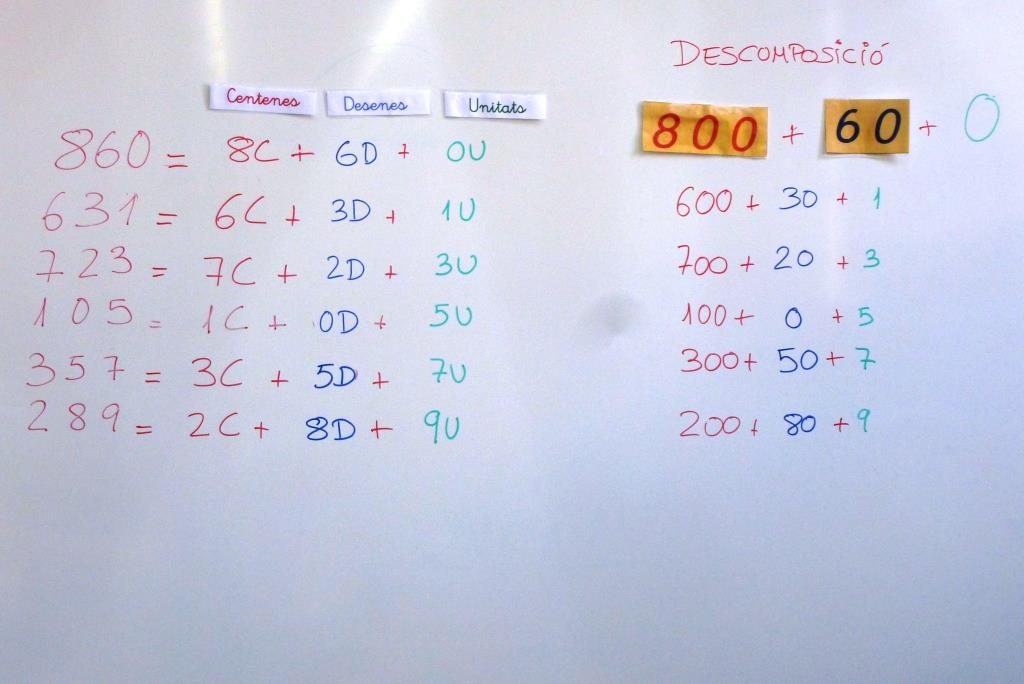 DESCOMPOSICIÓ
Centenes Desenes Unitats
860 = 8C + 6D + 0U 800 + 60 + 0
631 = 6C + 3D + 1U 600 + 30 + 1
723 = 7C + 2D + 3U 700 + 20 + 3
105 = 1C + 0D + 5U 100 + 0 + 5
357 = 3C + 5D + 7U 300 + 50 + 7
289 = 2C + 8D + 9U 200 + 80 + 9